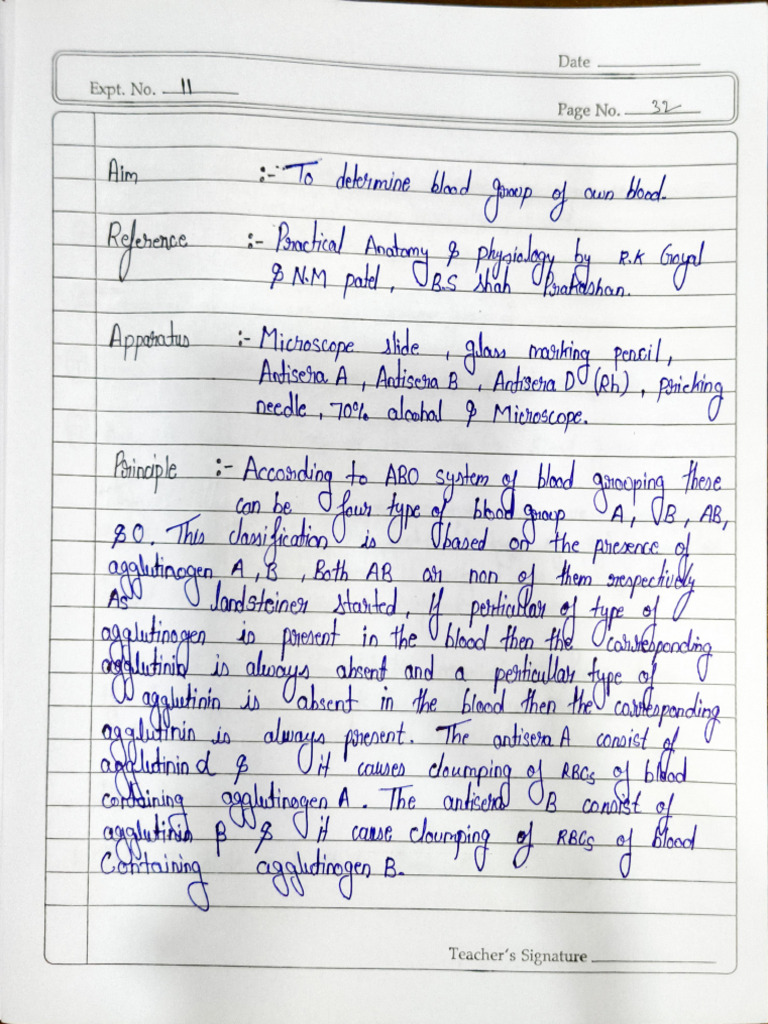 Date
Expt. No. 11
Page No. 32
Aim :- To determine blood group of own blood.
Reference :- Practical Anatomy & physiology by R.K Goyal
& N.M patel, B.S Shah Prakashan.
Apparatus :- Microscope slide, glass marking pencil,
Antisera A, Antisera B, Antisera D (Rh), pricking
needle, 70% alcohal & Microscope.
Principle :- According to ABO system of blood grouping these
can be four type of blood group A, B, AB,
& O. This classification is based on the presence of
agglutinogen A, B, Both AB or non of them respectively
As landsteiner started, if perticullar of type of
agglutinogen is present in the blood then the corresponding
agglutinin is always absent and a perticullar type of
agglutinin is absent in the blood then the corresponding
agglutinin is always present. The antisera A consist of
agglutinin α & it causes cloumping of RBCs of blood
containing agglutinogen A. The antisera B consist of
agglutinin β & it cause cloumping of RBCs of blood
Containing agglutinogen B.
Teacher's Signature